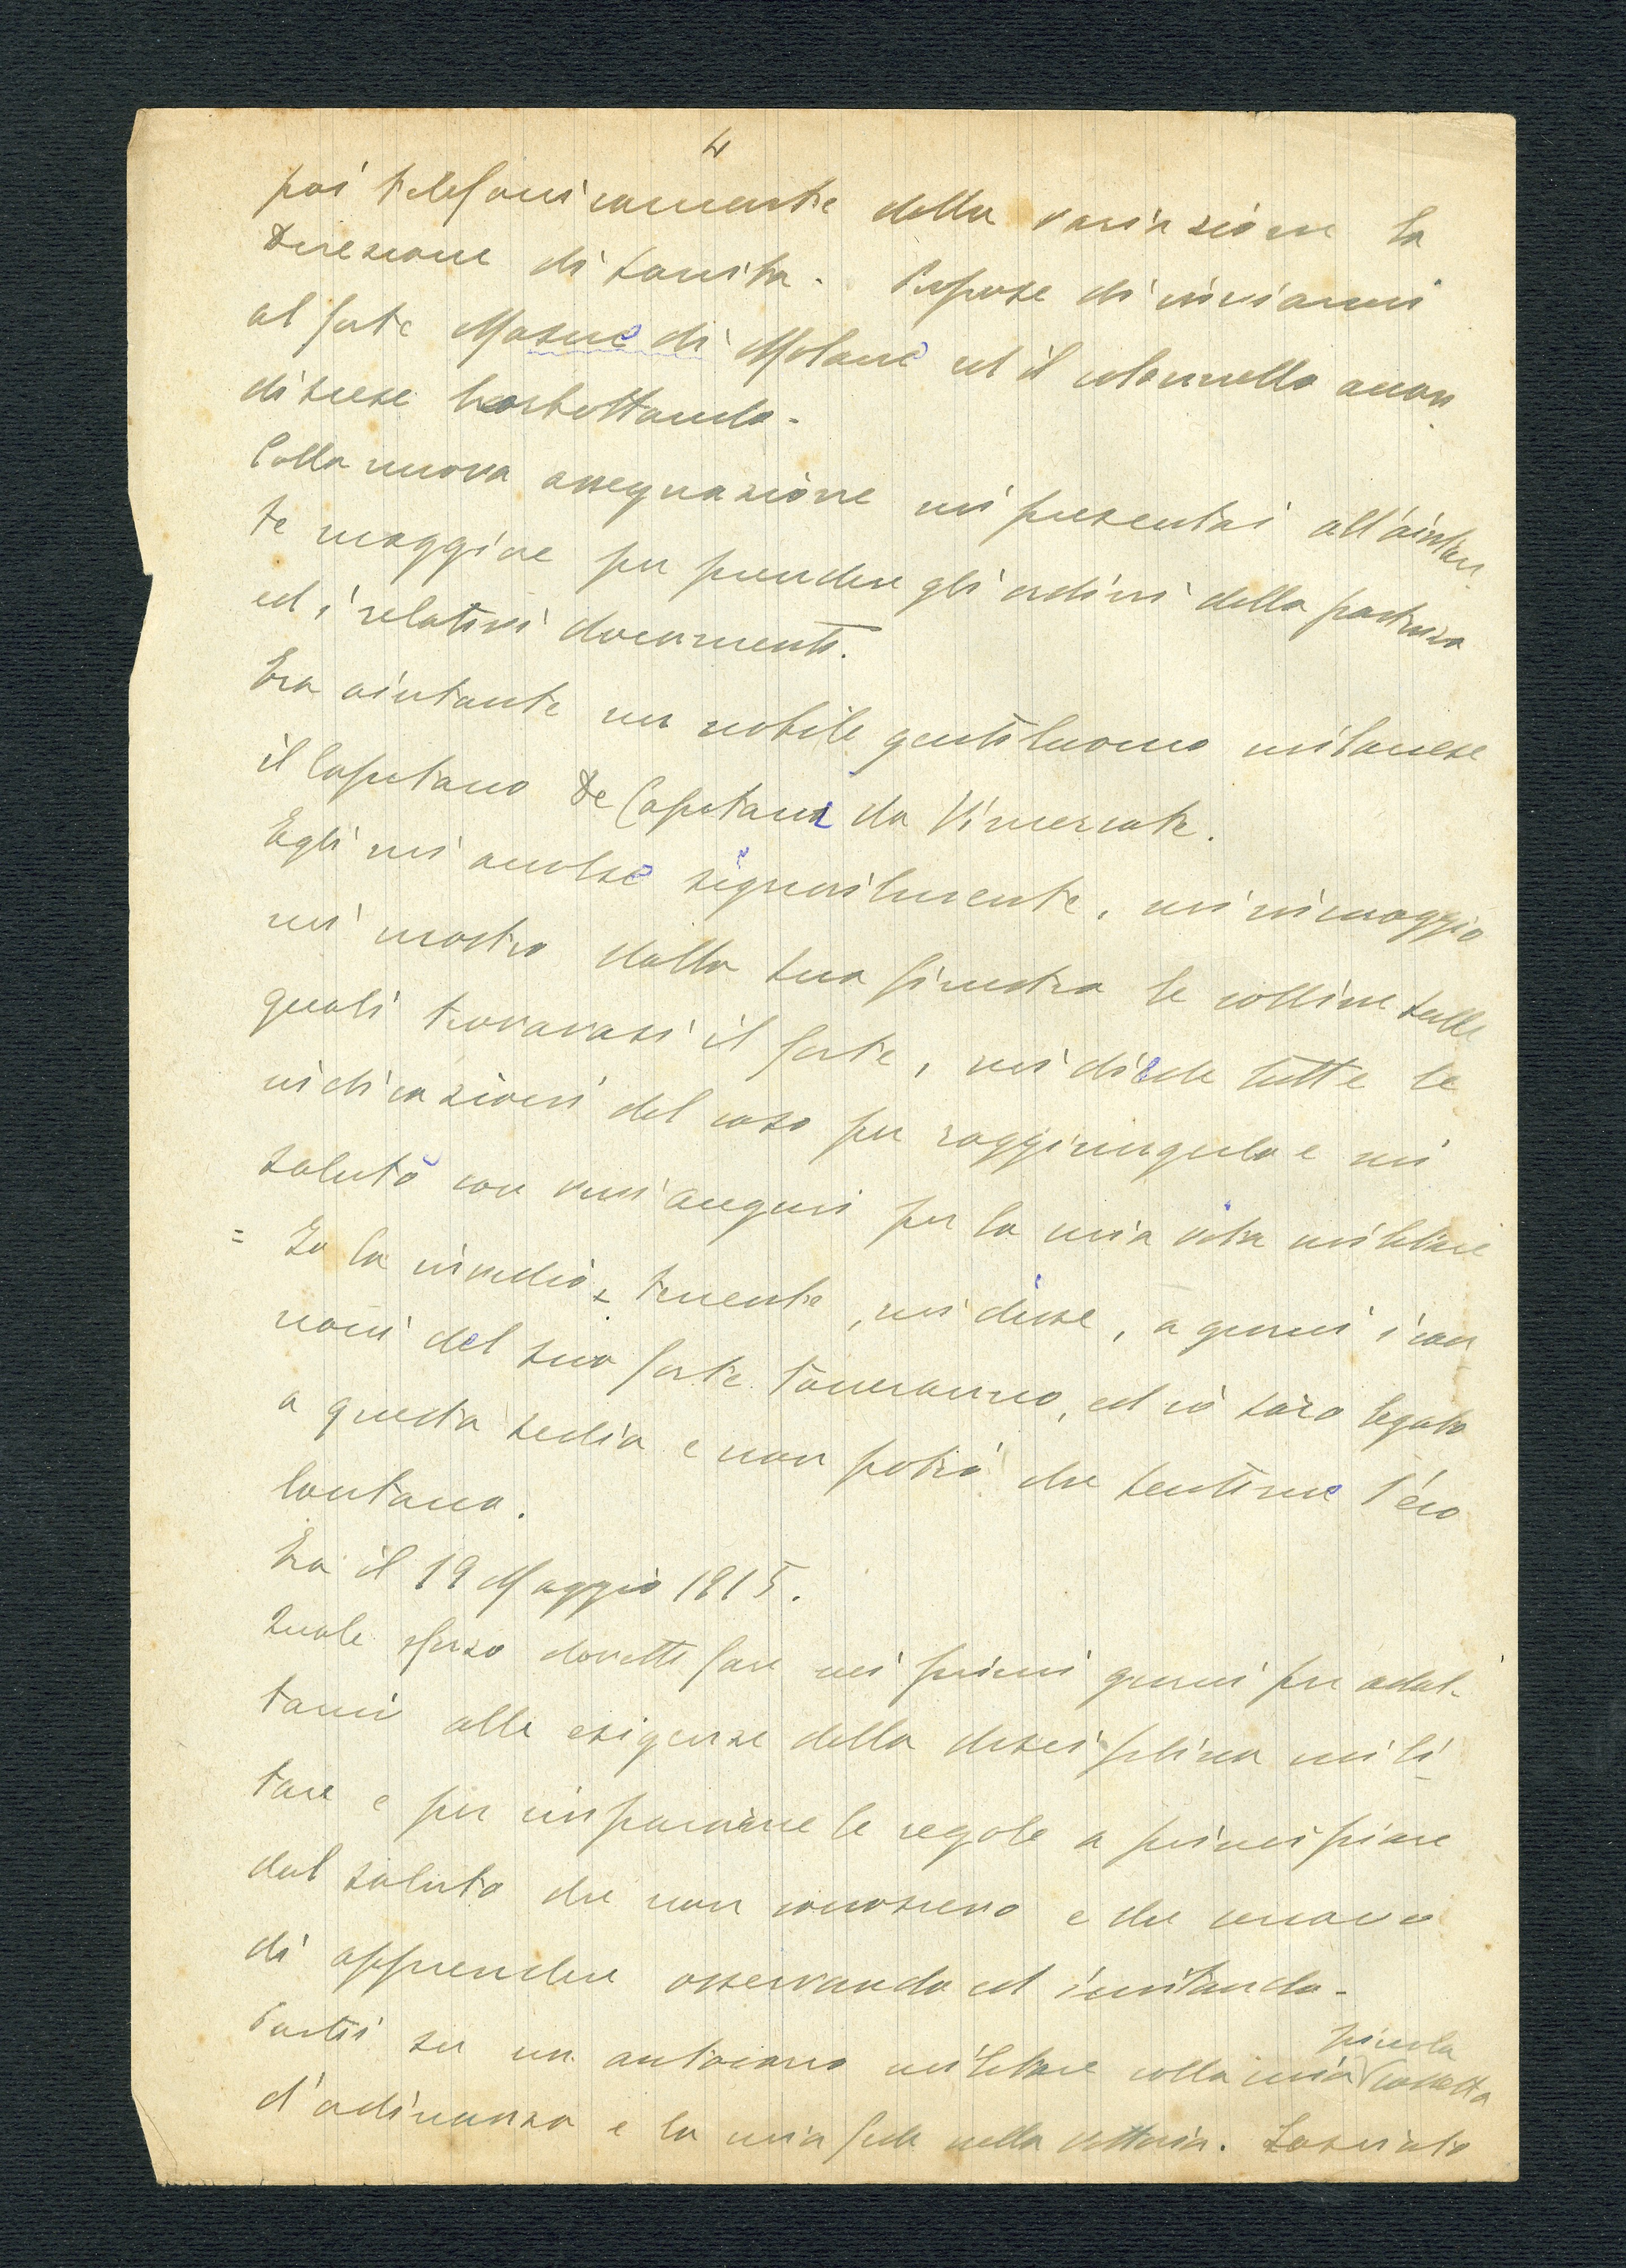 4
poi telefonicamente della variazione la
Direzione di Sanità. Propose di inviarmi
al forte Masue di Molane ed il colonnello accon
discese borbottando.
Colla nuova assegnazione mi presentai all'aiutan
te maggiore per prendere gli ordini della partenza
ed i relativi documenti.
Era aiutante un nobile gentiluomo milanese
il Capitano De Capitani da Vimercate.
Egli mi accolse signorilmente, mi incoraggiò
mi mostrò dalla sua finestra le colline sulle
quali trovavasi il forte, mi diede tutte le
indicazioni del caso per raggiungerlo e mi
salutò con vivi auguri per la mia vita militare
= Io la invidio, tenente, mi disse, a giorni i can
noni del suo forte tuoneranno, ed io sarò legato
a questa sedia e non potrò che sentirne l'eco
lontana.
Era il 19 Maggio 1915.
Quale sforzo dovetti fare nei primi giorni per adat-
tarmi alle esigenze della disciplina mili-
tare e per impararne le regole a principiare
dal saluto che non conoscevo e che cercavo
di apprendere osservando ed imitando.
Partii su un autocarro militare colla mia piccola cassetta
d'ordinanza e la mia fede nella vittoria. Lasciato